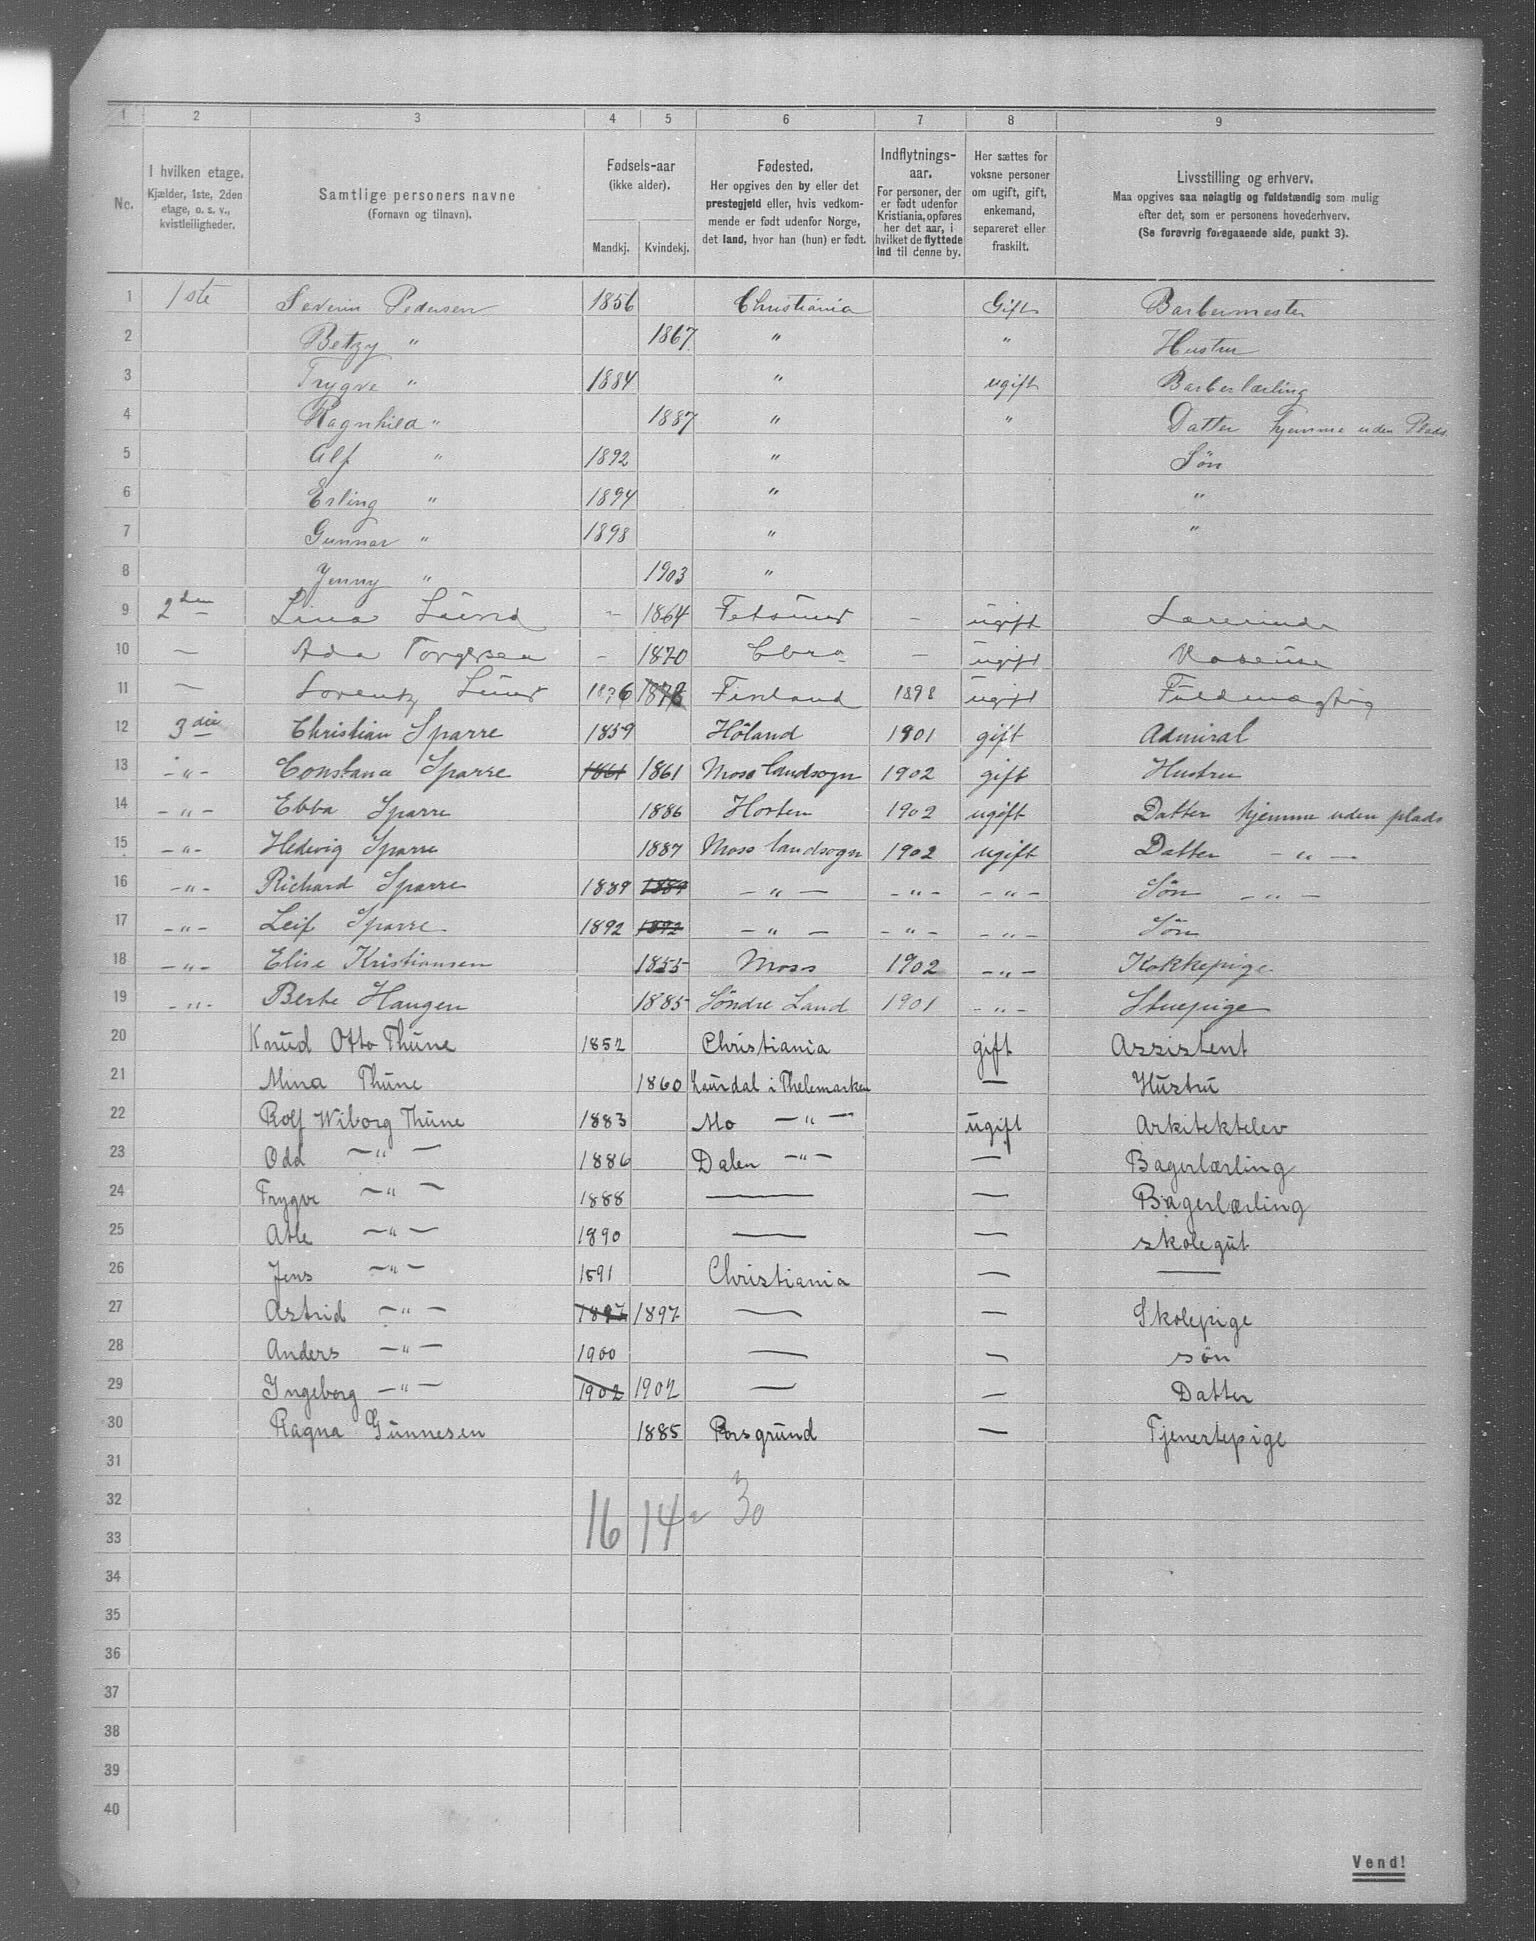 1 2 3 4 5 6 7 8 9
No.
I hvilken etage.
Kjælder, 1ste, 2den
etage, o. s. v.,
kvistleiligheder.
Samtlige personers navne
(Fornavn og tilnavn).
Fødsels-aar
(ikke alder).
Mandkj. Kvindekj.
Fødested.
Her opgives den by eller det
prestegjeld eller, hvis vedkom-
mende er født udenfor Norge,
det land, hvor han (hun) er født.
Indflytnings-
aar.
For personer, der
er født udenfor
Kristiania, opføres
her det aar, i
hvilket de flyttede
ind til denne by.
Her sættes for
voksne personer
om ugift, gift,
enkemand,
separeret eller
fraskilt.
Livsstilling og erhverv.
Maa opgives saa nøiagtig og fuldstændig som mulig
efter det, som er personens hovederhverv.
(Se forøvrig foregaaende side, punkt 3).
1 1ste Severin Pedersen 1856 Christiania Gift Barbermester
2 Betzy " 1867 " " Hustru
3 Trygve " 1884 " ugift Barberlærling
4 Ragnhild " 1887 " " Datter hjemme uden Plads
5 Alf " 1892 " Søn
6 Erling " 1894 " "
7 Gunnar " 1898 " "
8 Jenny " 1903 "
9 2den Lina Lund - 1864 - ugift Lærerinde
10 — Ada Torgersen - 1870 — ugift
11 — Lorentz Lund 1876 1878 Finland 1898 ugift Fuldmægtig
12 3die Christian Sparre 1859 Höland 1901 gift Admiral
13 -"- Constana Sparre 1861 1861 Moss landsogn 1902 gift Hustru
14 -"- Ebba Sparre 1886 Horten 1902 ugift Datter hjemme uden plads
15 -"- Hedvig Sparre 1887 Moss landsogn 1902 ugift Datter -"-
16 -"- Richard Sparre 1889 1889 -"- -"- -"- Sön -"-
17 -"- Leif Sparre 1892 1892 -"- -"- -"- Sön
18 -"- Elise Kristiansen 1855 Moss 1902 -"- Kokkepige
19 -"- Berte Haugen 1885 Söndre Land 1901 -"- Stuepige
20 Knud Otto Thune 1852 Christiania gift Assistent
21 Mina Thune 1860 Laurdal i Thelemarken — Hustru
22 Rolf Wiborg Thune 1883 Mo -"- ugift Arkitektelev
23 Odd -"- 1886 Dalen -"- — Bagerlærling
24 Trygve -"- 1888 — — Bagerlærling
25 Atle -"- 1890 — — skolegut
26 Jens -"- 1891 Christiania — —
27 Astrid -"- 1897 1897 — — Skolepige
28 Anders -"- 1900 — — søn
29 Ingeborg -"- 1902 1902 — — Datter
30 Ragna Gunnesen 1885 Porsgrund — Tjenertepige
31
32
16 14 = 30
33
34
35
36
37
38
39
40
Vend!